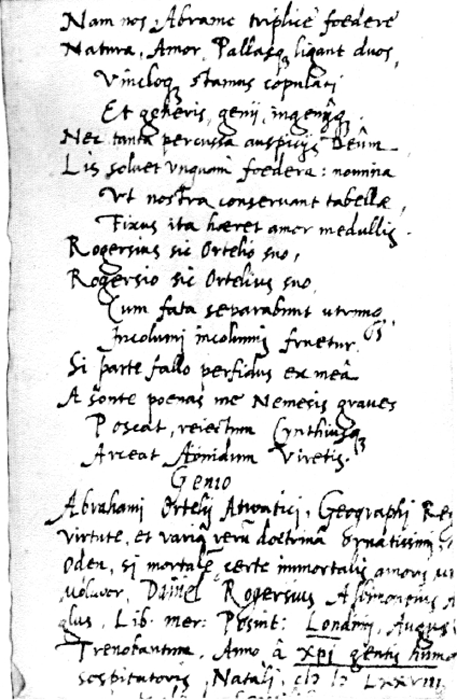 Nam nos, Abrame triplice foedere
Natura, Amor, Pallasq ligant duos,
Vincloq stamus copulati
Et generis, genii, ingeniiq.
Nec tanta percussa auspicijs Deûm
Lis soluet vnquam foedera: nomina
Vt nostra conseruant tabellæ,
Fixus ita hæret amor medullis.
Rogersius sic Ortelio suo,
Rogersio sic Ortelius suo,
Cum fata separabunt utrumq
Incolumi incolumis fruetur.
Si parte fallo perfidus ex meâ
A sonte poenas me Nemesis graues
Poscat, reiectum Cynthiusq
Arceat Aonidum Viretis.
Genio
Abrahami Ortelij Geographi Reg
virtute, et varia rerū doctrinâ ornatissimi
Oden, si mortalē, certe immortalis amoris
Daniel Rogersius
glus, Lib. mer: Posuit: Londini, August
Trenobantum, Anno â Xpi gentis huma
sospitatoris, Natali, cIɔ Iɔ LXXVIII